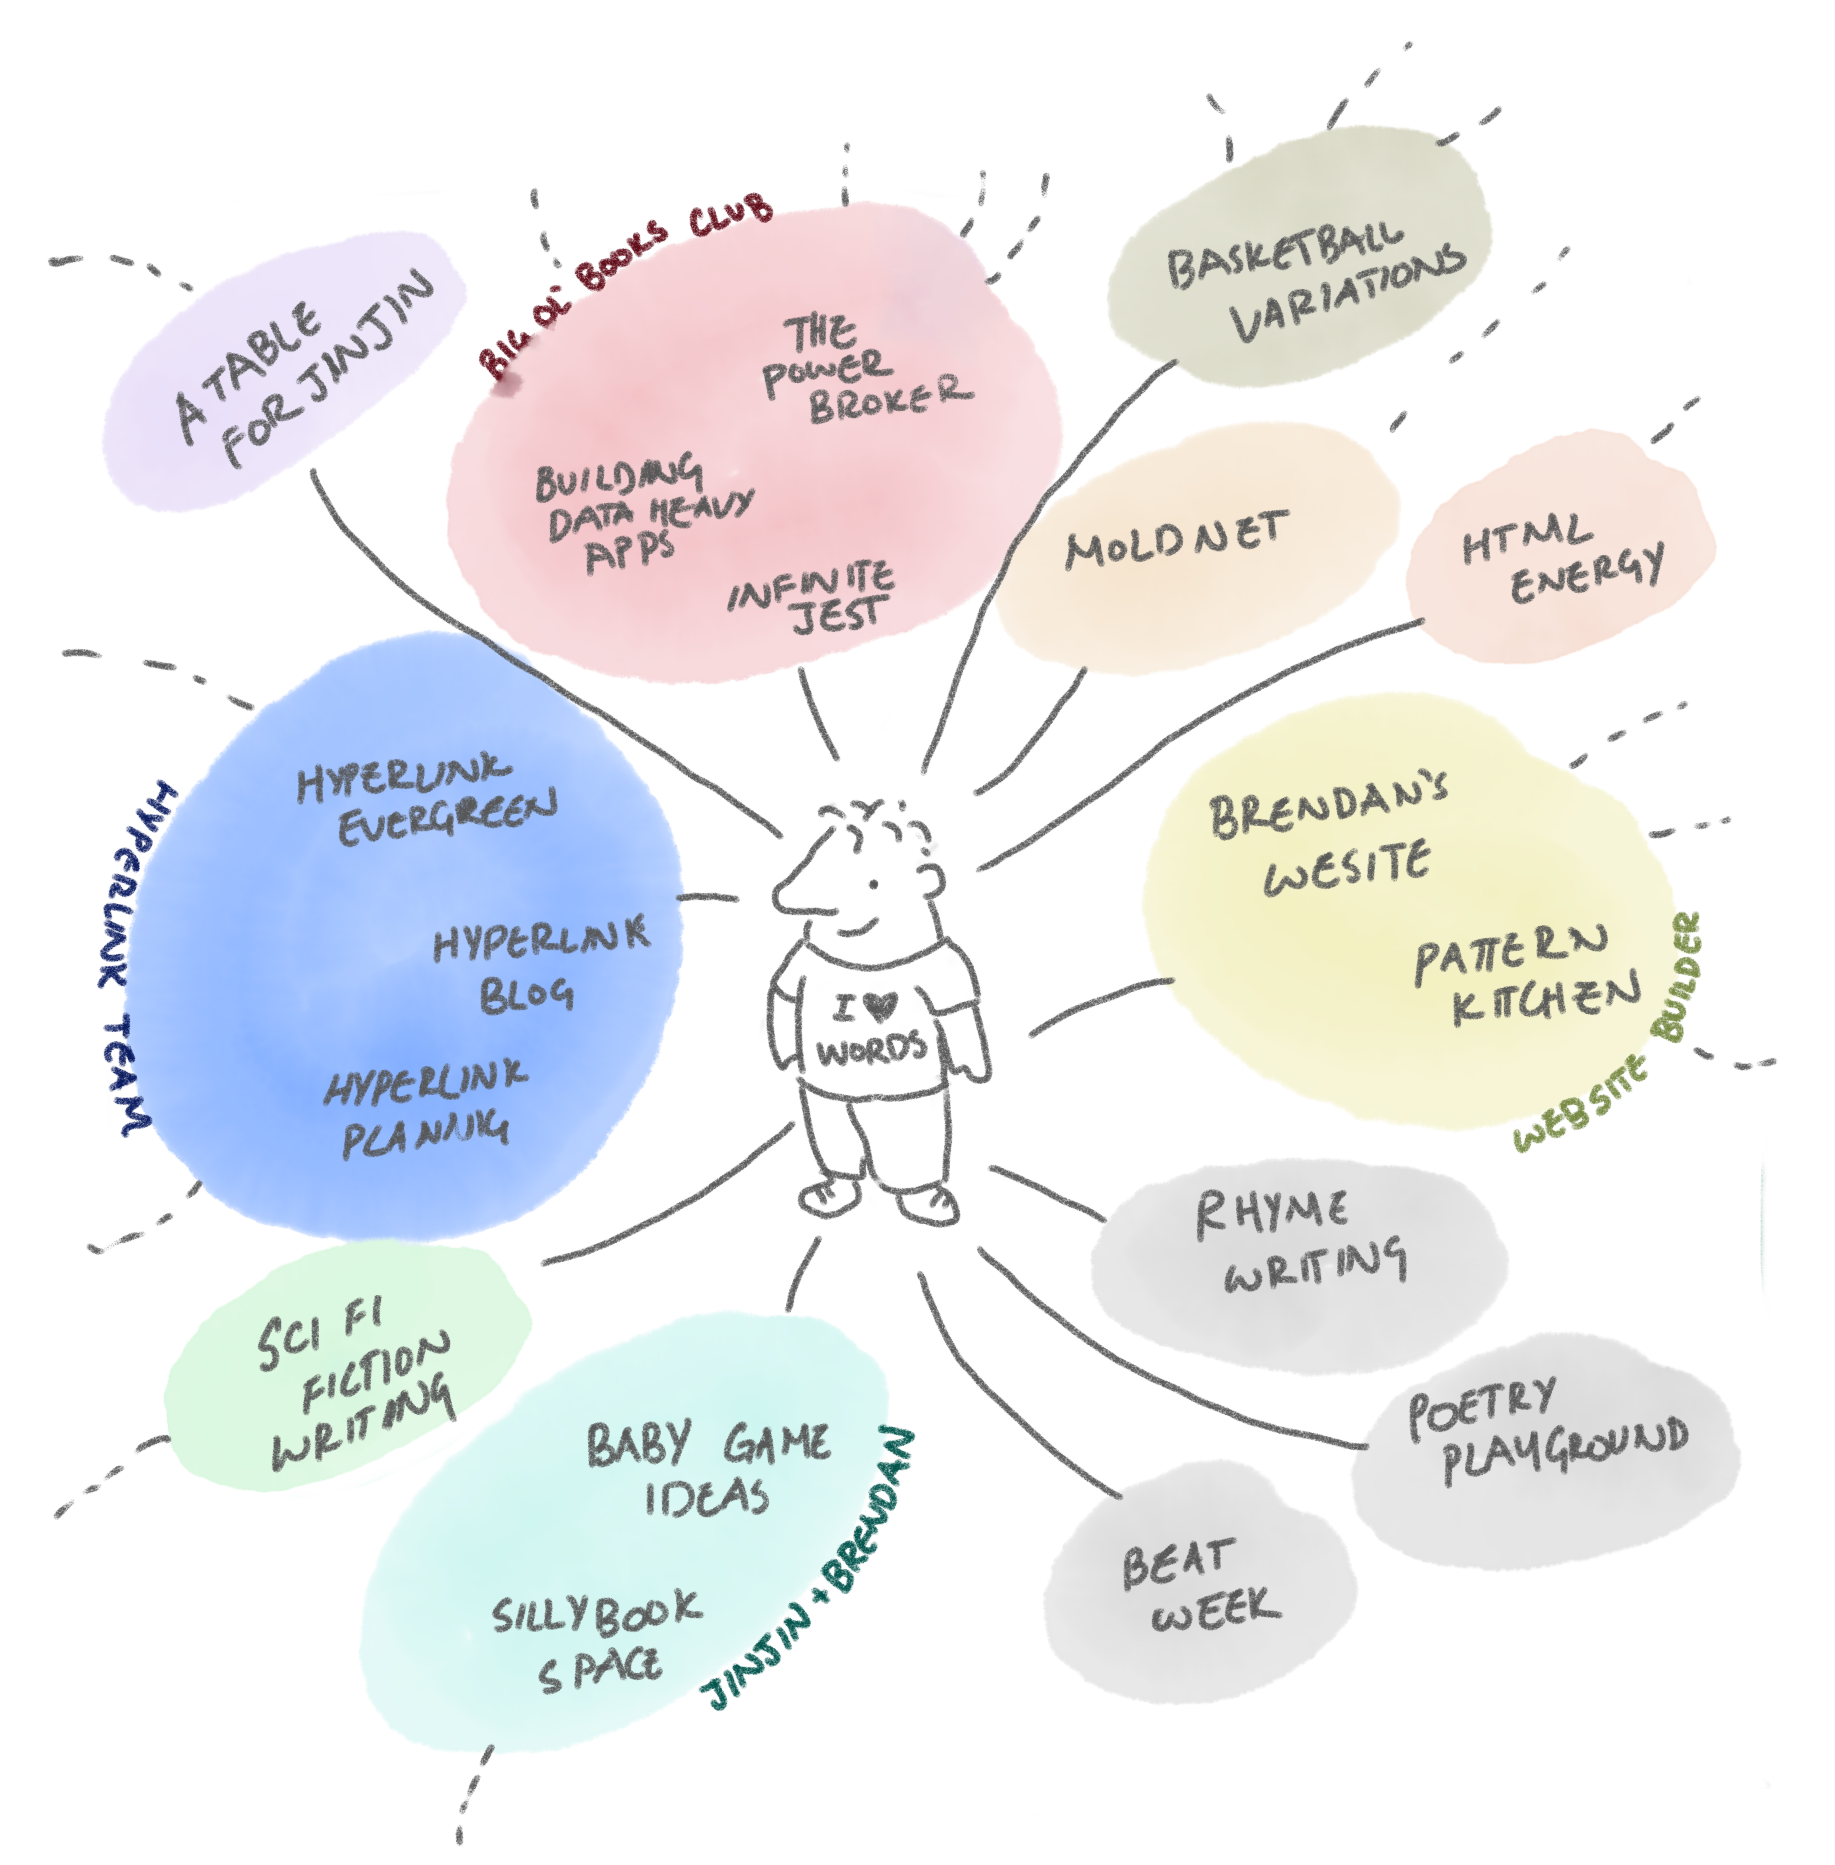 A TABLE
FOR JINJIN
BIG OL' BOOKS CLUB
THE
POWER
BROKER
BUILDING
DATA HEAVY
APPS
INFINITE
JEST
BASKETBALL
VARIATIONS
MOLDNET
HTML
ENERGY
HYPERLINK TEAM
HYPERLINK
EVERGREEN
HYPERLINK
BLOG
HYPERLINK
PLANNIG
I ♥
WORDS
BRENDAN'S
WESITE
PATTERN
KITCHEN
WEBSITE BUILDER
RHYME
WRITING
POETRY
PLAYGROUND
BEAT
WEEK
SCI FI
FICTION
WRITING
BABY GAME
IDEAS
SILLYBOOK
SPACE
JINJIN + BRENDAN